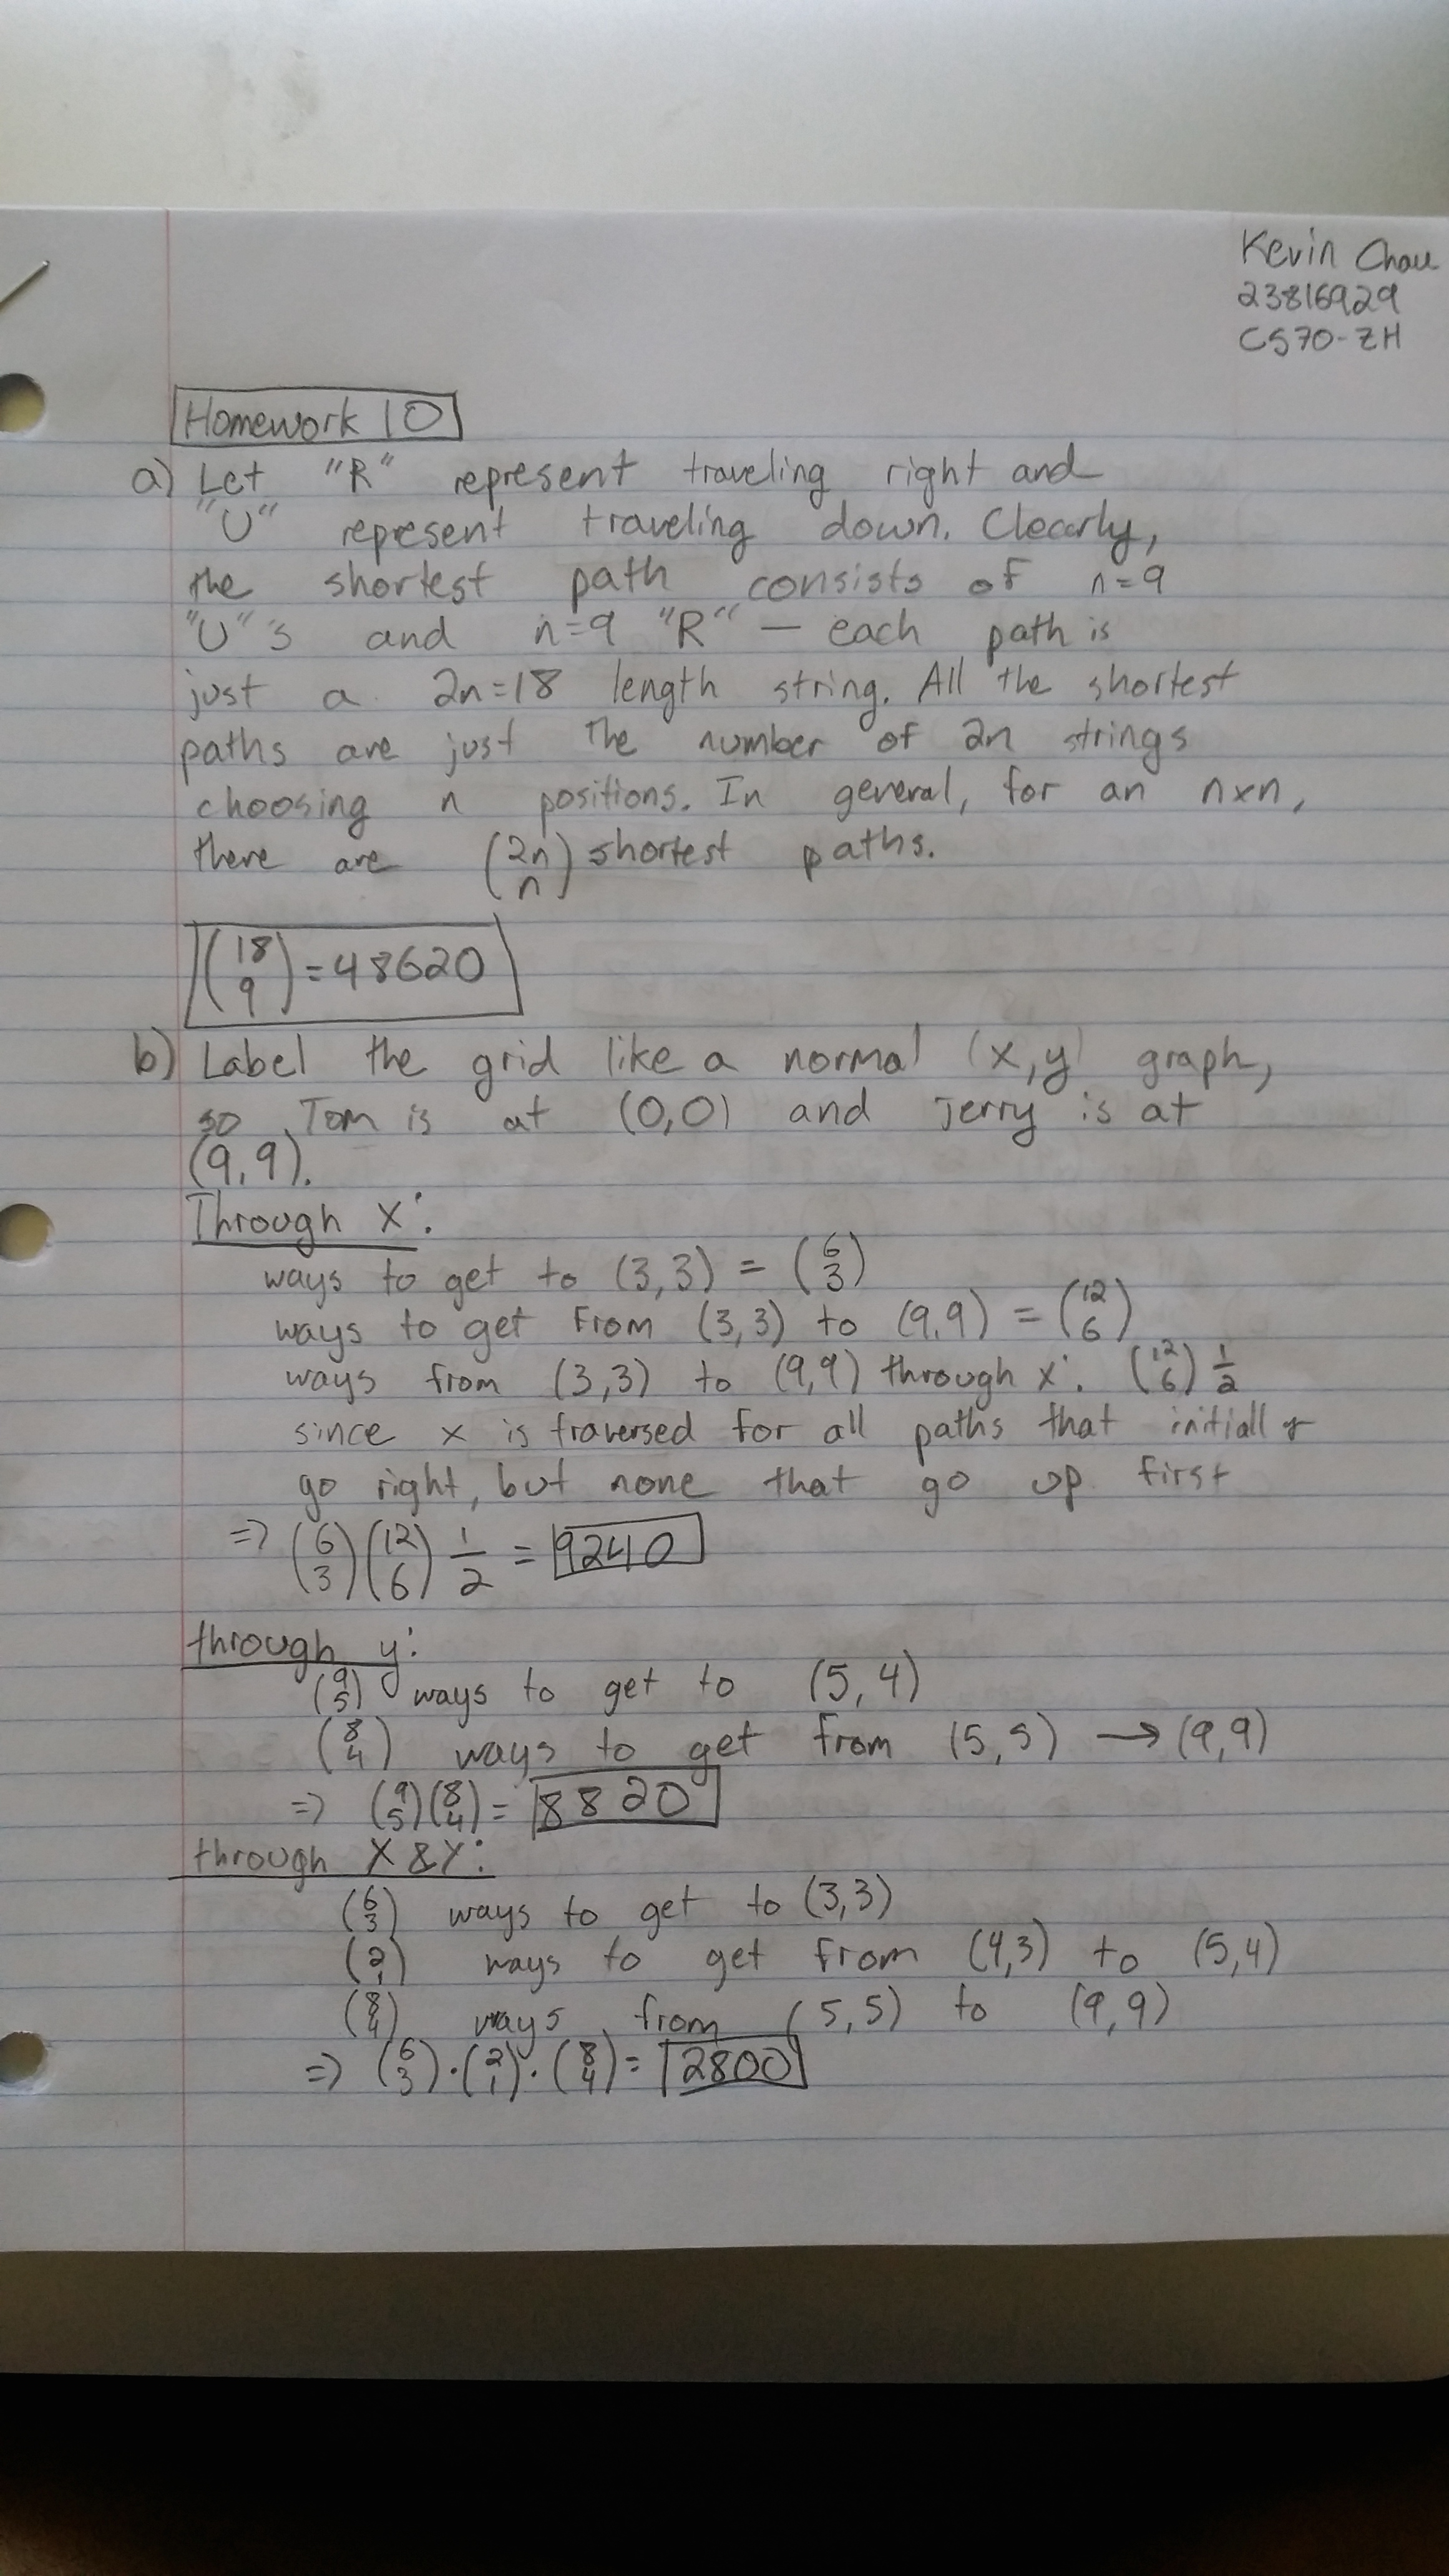 Kevin Chau
23816929
CS70-ZH
Homework 10
a) Let "R" represent traveling right and
"U" represent traveling down. Clearly,
the shortest path consists of n=9
"U"'s and n=9 "R" — each path is
just a 2n=18 length string. All the shortest
paths are just the number of 2n strings
choosing n positions. In general, for an n×n,
there are (2n n) shortest paths.
(18 9) = 48620
b) Label the grid like a normal (x,y) graph,
so Tom is at (0,0) and Jerry is at
(9,9).
Through X:
ways to get to (3,3) = (6 3)
ways to get from (3,3) to (9,9) = (12 6)
ways from (3,3) to (9,9) through x: (12 6) 1/2
since x is traversed for all paths that initially
go right, but none that go up first
=> (6 3)(12 6) 1/2 = 9240
through y:
(9 5) ways to get to (5,4)
(8 4) ways to get from (5,5) → (9,9)
=> (9 5)(8 4) = 8820
through X & Y:
(6 3) ways to get to (3,3)
(2 1) ways to get from (4,3) to (5,4)
(8 4) ways from (5,5) to (9,9)
=> (6 3)·(2 1)·(8 4) = 2800